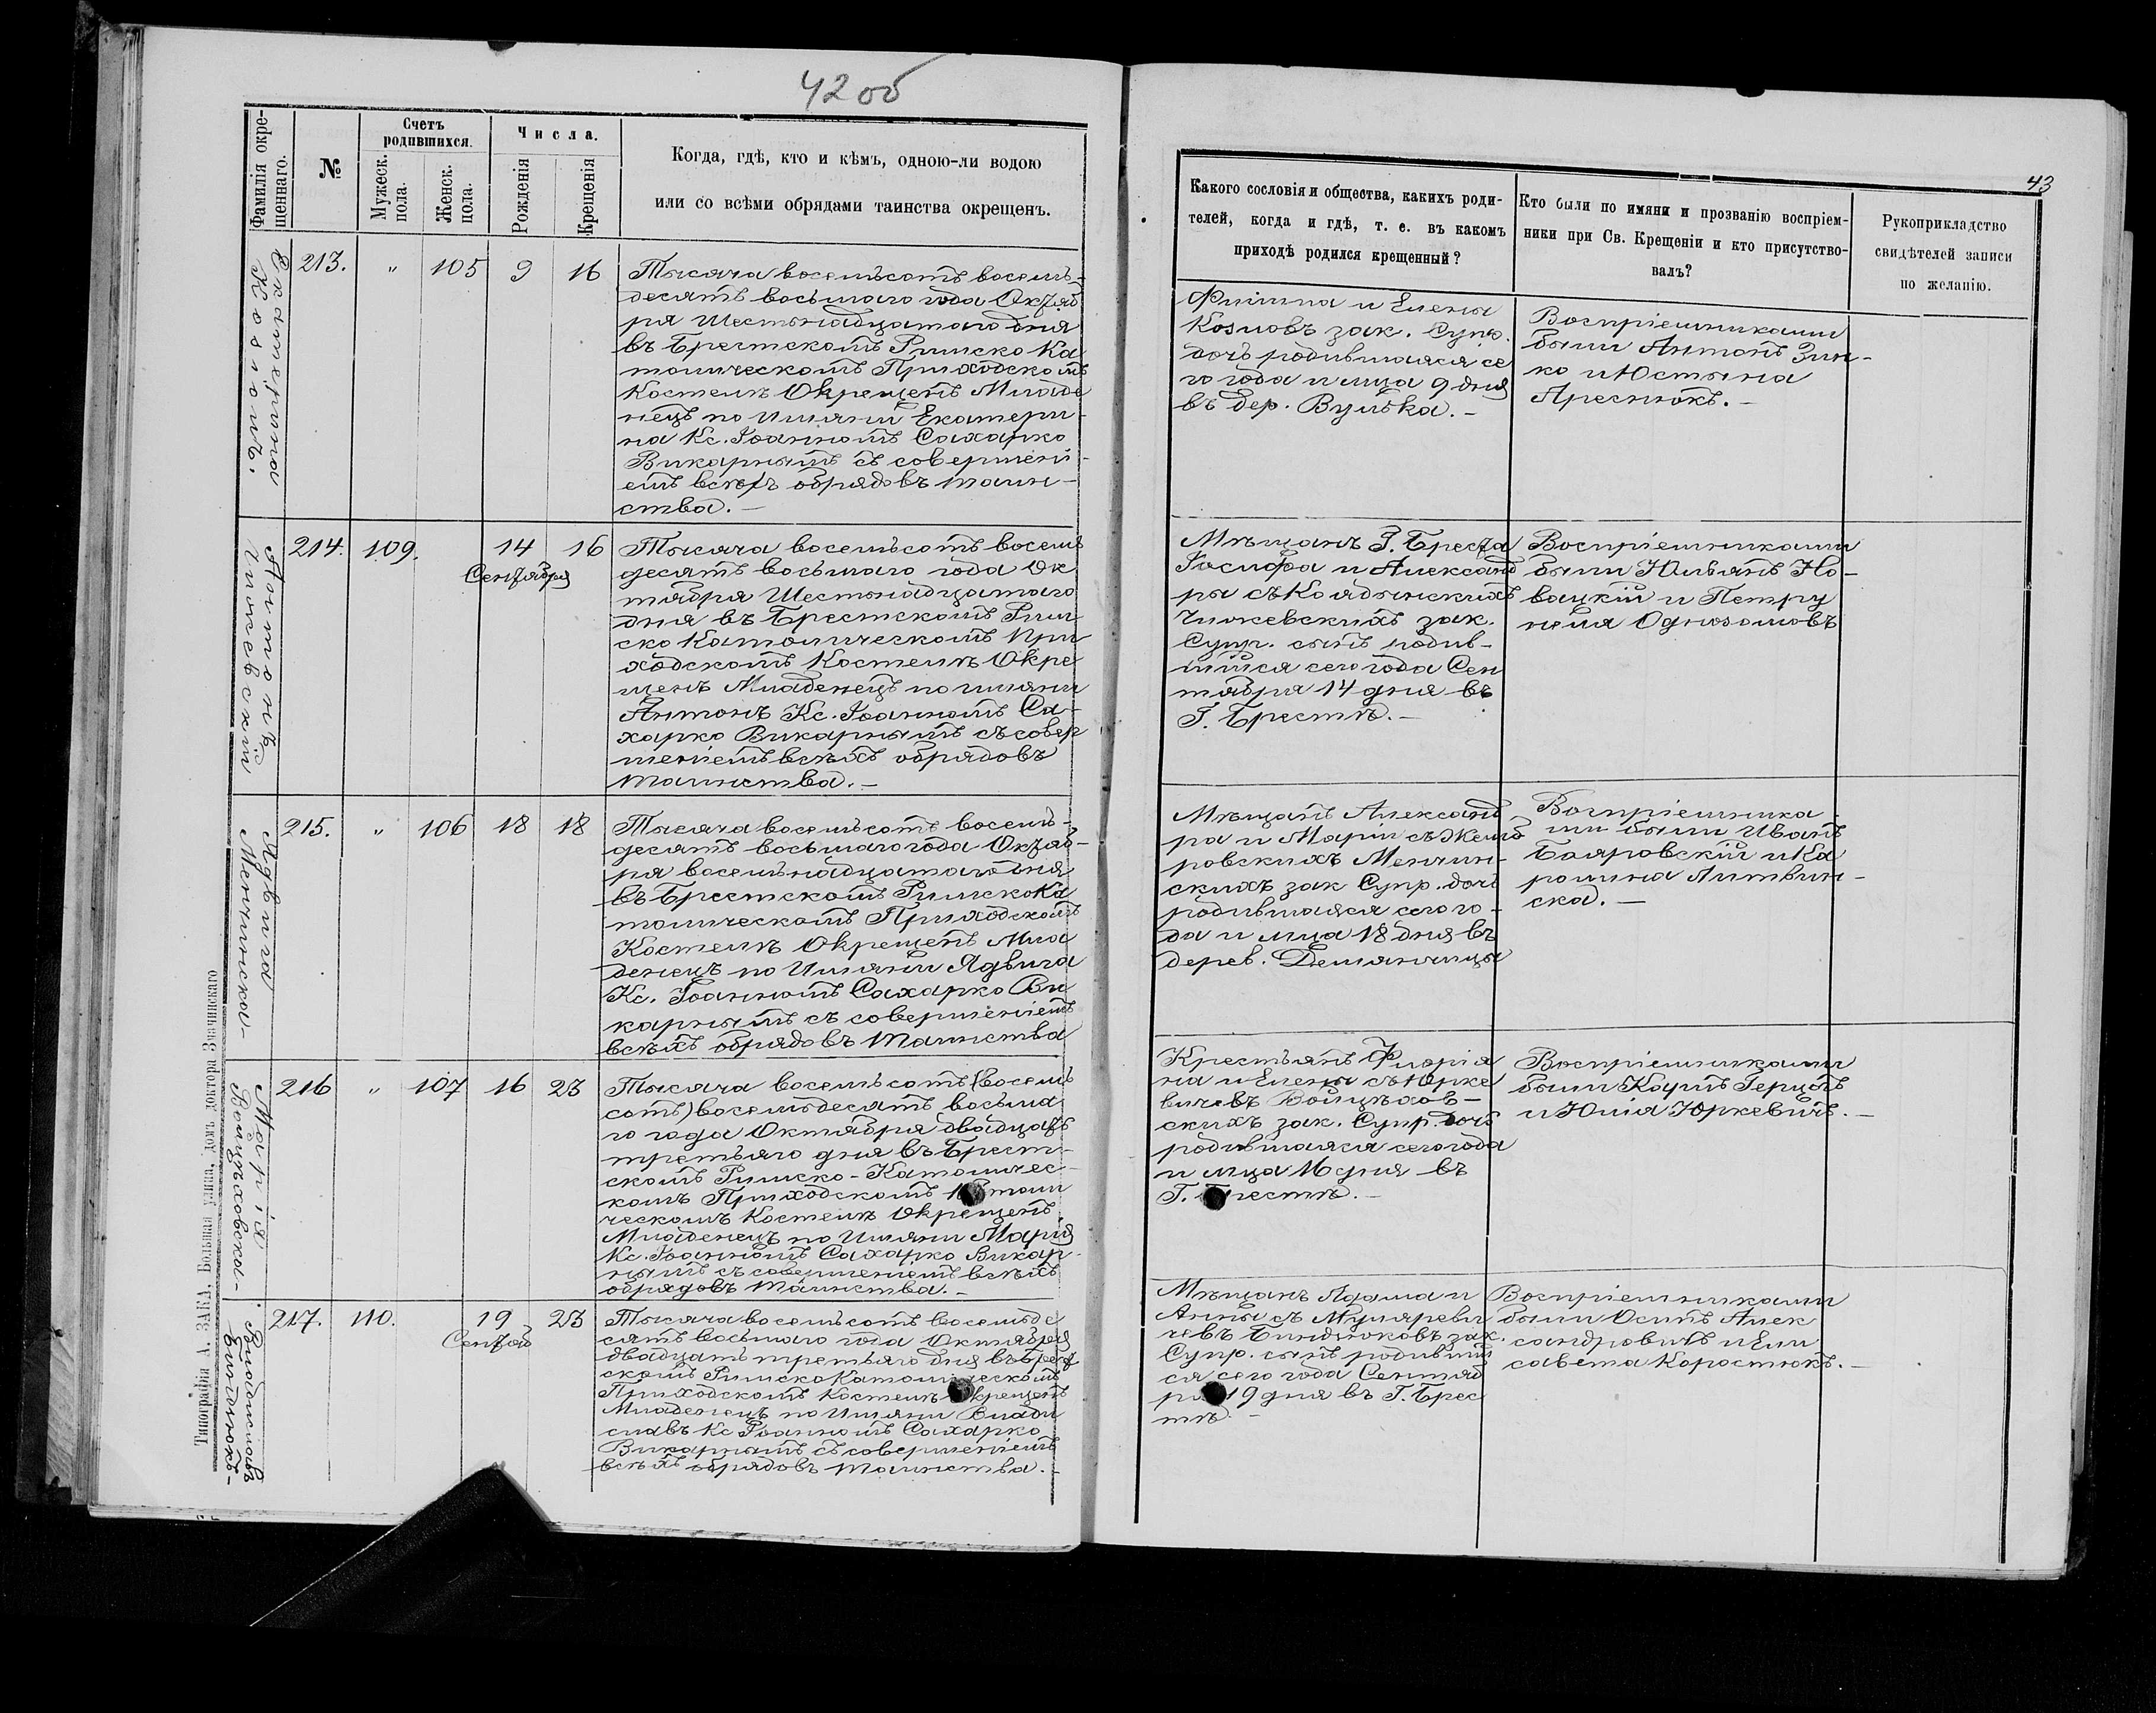 42 об
Фамилія окре-
щеннаго.
№
Счетъ
родившихся.
Мужеск.
пола.
Женск.
пола.
Числа.
Рожденія
Крещенія
Когда, гдѣ, кто и кѣмъ, одною-ли водою
или со всѣми обрядами таинства окрещенъ.
Екатерина
213.
"
105
9
16
Тысяча восемьсотъ восемь-
десятъ восьмаго года Октяб
ря Шестнадцатаго дня
въ Брестскомъ Римско Ка
толическомъ Приходскомъ
Костелѣ Окрещенъ Младе
нецъ по Имяни Екатери-
на Кс. Іоанномъ Сахарко
Викарнымъ съ совершені-
емъ всѣхъ обрядовъ таин-
ства.-
Антонъ
214.
109.
14
Сентября
16
Тысяча восемьсотъ восемь
десятъ восьмаго года Ок
тября Шестнадцатаго
дня въ Брестскомъ Рим
ско Католическомъ При
ходскомъ Костелѣ Окре
щенъ Младенецъ по имяни
Антонъ Кс. Іоанномъ Са-
харко Викарнымъ съ совер
шеніемъ всѣхъ обрядовъ
таинства.-
Ядвига
Менчинская-
215.
"
106
18
18
Тысяча восемьсотъ восемь-
десятъ восьмаго года Октяб-
ря восемнадцатаго дня
въ Брестскомъ Римско Ка
толическомъ Приходскомъ
Костелѣ Окрещенъ Мла
денецъ по Имяни Ядвига
Кс. Іоанномъ Сахарко Ви
карнымъ съ совершеніемъ
всѣхъ обрядовъ таинства
Марія
Войцѣховска-
216
"
107
16
23
Тысяча восемьсотъ (восемь
сотъ) восемьдесятъ восьма
го года Октября двадцать
третьяго дня въ Брест-
скомъ Римско-Католичес-
комъ Приходскомъ Католи
ческомъ Костелѣ Окрещенъ
Младенецъ по Имяни Марія
Кс. Іоанномъ Сахарко Викар-
нымъ съ совершеніемъ всѣхъ
обрядовъ таинства.-
Владиславъ
Биндюкъ-
217.
110.
19
Сентяб
23
Тысяча восемьсотъ восемьде
сятъ восьмаго года Октября
двадцать третьяго дня въ Брест
скомъ Римско Католическомъ
Приходскомъ Костелѣ Окрещенъ
Младенецъ по Имяни Влади
славъ Кс Іоанномъ Сахарко
Викарнымъ съ совершеніемъ
всѣхъ обрядовъ таинства.-
Типографія А. ЗАКА, Большая улица, домъ доктора Значинскаго
43
Какого сословія и общества, какихъ роди-
телей, когда и гдѣ, т. е. въ какомъ
приходѣ родился крещенный?
Кто были по имяни и прозванію воспріем-
ники при Св. Крещеніи и кто присутство-
валъ?
Рукоприкладство
свидѣтелей записи
по желанію.
Филипа и Елены
Козловъ зак. Супр.
дочь родившаяся се
го года и мца 9 дня
въ дер. Вулька.-
Воспріемниками
были Антонъ Зин-
ко и Юстына
Арестюкъ.-
Мѣщанъ Г. Бреста
Іосифа и Александ
ры съ Колядынскихъ
Чижевскихъ зак.
Супр. сынъ родив-
шійся сего года Сен
тября 14 дня въ
Г. Брестѣ.-
Воспріемниками
были Юльянъ Но-
вацкій и Петру
неля
Мѣщанъ Александ-
ра и Маріи съ
ровскихъ Менчин-
скихъ зак Супр. дочь
родившаяся сего го-
да и мца 18 дня въ
дерев. Демянчицы
Воспріемника-
ми были Иванъ
Бояровскій и Ка
ролина Литвин-
ска.-
Крестьянъ Флорія
на и Елены съ Юрке
вичевъ Войцѣхов-
скихъ зак. Супр. дочь
родившаяся сего года
и мца 16 дня въ
Г. Брестѣ.-
Воспріемниками
были Гершъ
и Юлія Юркевичъ.-
Мѣщанъ Адама и
Анны съ Муляреви
чевъ Биндюковъ зак.
Супр. сынъ родивший
ся сего года Сентяб
ря 19 дня въ Г. Брес
тѣ.-
Воспріемниками
были Осипъ Алек
сандровичъ и Ели
савета Коростюкъ.-